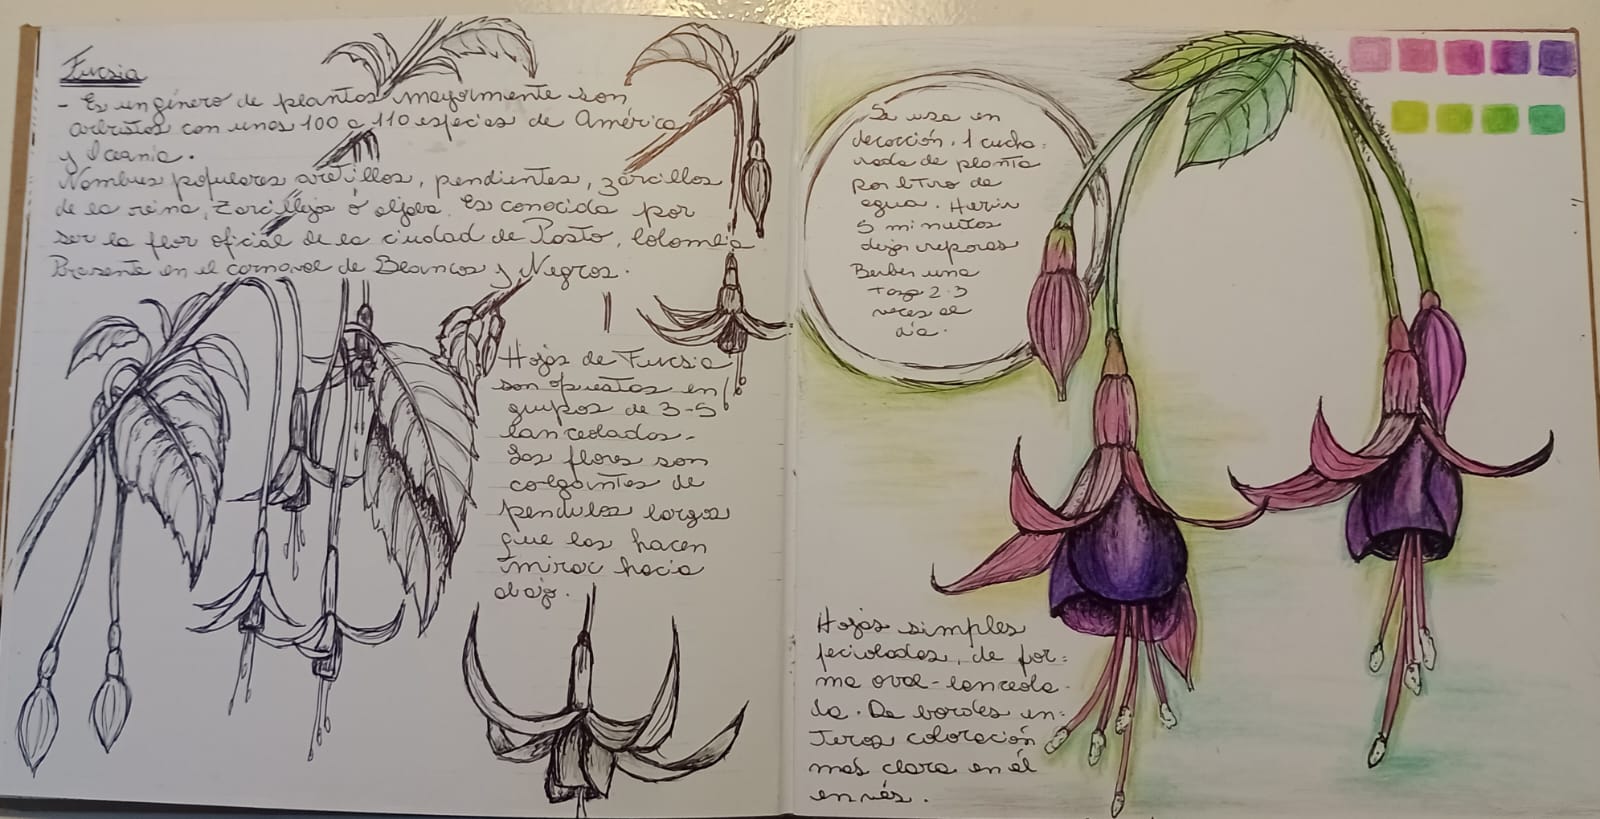 Fucsia
- Es un género de plantas mayormente son
arbustos con unos 100 a 110 especies de América
y Oceanía.
Nombres populares aretillos, pendientes, zarcillos
de la reina, zarcilleja ó aljaba. Es conocida por
ser la flor oficial de la ciudad de Pasto, Colombia
Presente en el carnaval de Blancos y Negros.
Hojas de Fucsia
son opuestas en
grupos de 3-5
lanceoladas.
Las flores son
colgantes de
pendulos largos
que las hacen
mirar hacia
abajo.
Se usa en
decocción. 1 cucha:
rada de planta
por litro de
agua. Hervir
5 minutos
dejar reposar
Beber una
taza 2-3
veces al
día.
Hojas simples
peciolades, de for:
ma oval-lanceola
da. De bordes en:
teros coloración
más clara en el
envés.